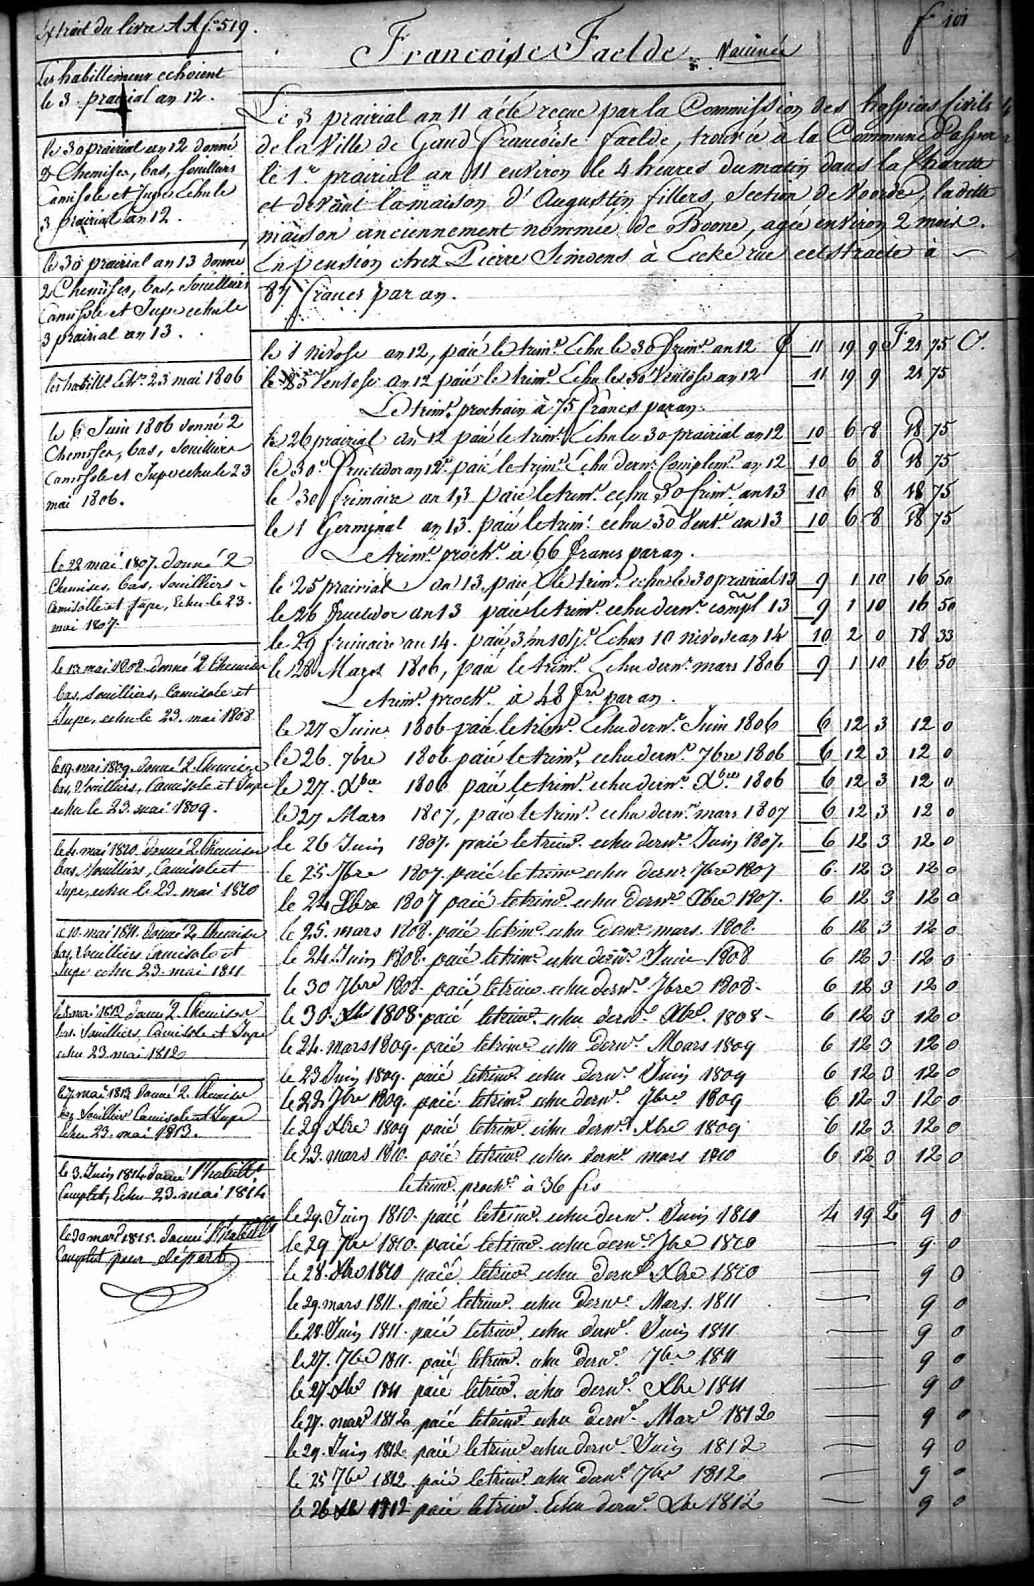 Extrait du livre AA f° 519.
f° 101
Francoise Faelde. Vaccinée
Les habillemens echoient
le 3 prairial an 12.
le 30 prairial an 12 donné
2 Chemises, bas, souilliers
Camisole et Jupe Echu le
3 prairial an 12.
le 30 prairial an 13 donné
2 Chemises, bas, souilliers
Camisole et Jupe echu le
3 prairial an 13.
les habillts Echts 23 mai 1806
le 6 Juin 1806 donné 2
Chemises, bas, souilliers
Camisole et Jupe echu le 23
mai 1806.
le 22 mai 1807. donné 2
Chemises, bas, souilliers
Camisolle et Jupe, Echu le 23.
mai 1807
le 12 mai 1808. donné 2 Chemises
bas, souilliers, Camisole et
Jupe, echu le 23. mai 1808
le 19. mai 1809. donné 2. Chemises
bas, souilliers, Camisole et Jupe
echu le 23. mai 1809.
le 4. mai 1810. donné 2. Chemises
bas, souilliers, Camisole et
Jupe, echu le 23. mai 1810
le 10. mai 1811. donné 2. Chemises
bas, souilliers, Camisole et
Jupe echu 23. mai 1811
mai 1812 donné 2. Chemises
bas. souilliers, Camisole et Jupe
echu 23. mai 1812
le 7 mai 1813 donné 2. Chemises
bas, souilliers Camisole et Jupe
Echu 23. mai 1813.
le 3. Juin 1814 donné l'habillt.
Complet, Echu 23. mai 1814
le 20 mars 1815. donné l'habillt
Complet pour départ
Le 3 prairial an 11 a été recue par la Commission des hospices civils
de la Ville de Gand Francoise Faelde, trouvée a la Commune d'asper
le 1er prairial an 11 environ le 4 heures du matin dans la
et devant la maison d'Augustin fillers, Section de Voorde, la dite
maison anciennement nommée de Boone, agée environ 2 mois.
En pension chez Pierre Simoens à Eecke rue eelstraete à
87 francs par an.
le 1 nivose an 12, paié le trimre Echu le 30 frimre an 12 11 19 9 F. 21 75
le 25 Ventose an 12 paié le trimre Echu les 30 Ventose an 12 11 19 9 21 75
Le trimre prochain à 75 francs par an.
le 26 prairial an 12 paié le trimre Echu le 30 prairial an 12 10 6 8 18 75
le 30e fructidor an 12e paié le trimre Echu dernr Complemre an 12 10 6 8 18 75
le 30 frimaire an 13 paié le trimre echu 30 frimre an 13 10 6 8 18 75
le 1 Germinal an 13. paié le trimre echu 30 Ventse an 13 10 6 8 18 75
Le trimre prochn à 66 francs par an.
le 25 prairial an 13, paié le trimre echu le 30 prairial 13 9 1 10 16 50
le 26 fructidor an 13 paié le trimre echu dernr compl 13 9 1 10 16 50
le 29 frimaire an 14. paié 3 m 10 jrs Echus 10 nivose an 14 10 2 0 18 33
le 28 Mars 1806, paié le trimre Echu dernr mars 1806 9 1 10 16 50
Le trimre prochn à 48 frs par an.
le 27 Juin 1806 paié le trimre Echu dernr Juin 1806 6 12 3 12 0
le 26. 7bre 1806 paié le trimre echu dernr 7bre 1806 6 12 3 12 0
le 27. Xbre 1806 paié le trimre echu dernr Xbre 1806 6 12 3 12 0
le 27 Mars 1807, paié le trimre echu dernr mars 1807 6 12 3 12 0
le 26 Juin 1807. paié le trimre echu dernr Juin 1807. 6 12 3 12 0
le 25. 7bre 1807 paié le trimre echu dernr 7bre 1807 6 12 3 12 0
le 24 Xbre 1807 paié le trimre echu dernr Xbre 1807. 6 12 3 12 0
le 25. mars 1808. paié le trimre echu dernr mars. 1808 6 12 3 12 0
le 24. Juin 1808. paié le trimre echu dernr Juin 1808 6 12 3 12 0
le 30 7bre 1808. paié le trimre echu dernr 7bre 1808. 6 12 3 12 0
le 30. Xbre 1808. paié le trimre echu dernr Xbre. 1808 6 12 3 12 0
le 24. mars 1809. paié le trimre echu dernr Mars 1809 6 12 3 12 0
le 23 Juin 1809. paié le trimre echu dernr Juin 1809 6 12 3 12 0
le 22 7bre 1809. paié le trimre echu dernr 7bre 1809 6 12 3 12 0
le 29 Xbre 1809 paié le trimre echu dernr Xbre 1809 6 12 3. 12 0
le 23. mars 1810. paié le trimre echu dernr mars 1810 6 12 0 12 0
le trimre prochn à 36 frs
le 29. Juin 1810. paié le trimre echu dernr Juin 1810 4 19 2 9 0
le 29 7bre 1810. paié le trimre echu dernr 7bre 1810 9 0
le 28. Xbre 1810 paié le trimre echu dernr Xbre 1810 9 0
le 29. mars 1811. paié le trimre echu dernr Mars. 1811 9 0
le 28. Juin 1811. paié le trimre echu dernr Juin 1811 9 0
le 27. 7bre 1811. paié le trimre echu dernr 7bre 1811 9 0
le 27. Xbre 1811 paié le trimre echu dernr Xbre 1811 9 0
le 27. mars 1812 paié le trimre echu dernr Mars 1812 9 0
le 29. Juin 1812 paié le trimre echu dernr Juin 1812 9 0
le 25 7bre 1812 paié le trimre echu dernr 7bre 1812 9 0
le 26 Xbre 1812 paié le trimre Echu dernr Xbre 1812 9 0